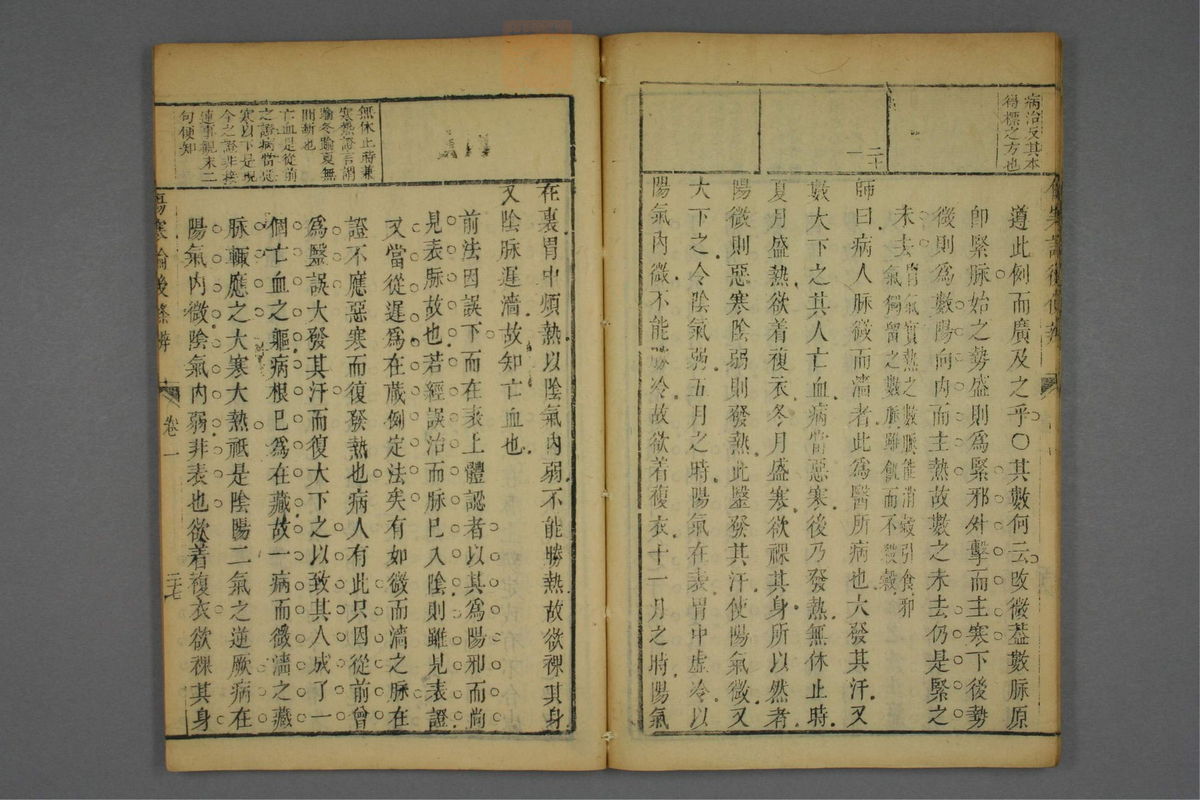 病治反其本
得標之方也
二十一
遵此例而廣及之乎〇其數何云改微葢數脉原
卽緊脉始之勢盛則爲緊邪外擊而主寒下後勢
微則爲數陽向内而主熱故數之未去仍是緊之
未去
胃氣實熱之數脉能消穀引食邪
氣獨留之數脉雖飢而不殺穀
師曰病人脉微而濇者此爲醫所病也大發其汗又
數大下之其人亡血病當惡寒後乃發熱無休止時
夏月盛熱欲着複衣冬月盛寒欲裸其身所以然者
陽微則惡寒陰弱則發熱此醫發其汗使陽氣微又
大下之令陰氣弱五月之時陽氣在表胃中虛冷以
陽氣内微不能勝冷故欲着複衣十一月之時陽氣
無休止時兼
寒熱證言謂
踰冬踰夏無
間斷也
亡血是從前
之證病當惡
寒以下是現
今之證非接
連事觀末二
句便知
在裏胃中煩熱以陰氣内弱不能勝熱故欲裸其身
又陰脉遲濇故知亡血也
前法因誤下而在表上體認者以其爲陽邪而尚
見表脉故也若經誤治而脉已入陰則雖見表證
又當從遲爲在藏例定法矣有如微而濇之脉在
證不應惡寒而復發熱也病人有此只因從前曾
爲醫誤大發其汗而復大下之以致其人成了一
個亡血之軀病根已爲在藏故一病而微濇之藏
脉輙應之大寒大熱祇是陰陽二氣之逆厥病在
陽氣内微陰氣内弱非表也欲着複衣欲裸其身
傷寒論後條辨
卷一
三七